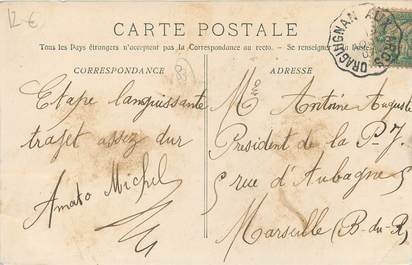 12 €
CARTE POSTALE
Tous les Pays étrangers n'acceptent pas la Correspondance au recto. Se renseigner
CORRESPONDANCE
83
Etape languissante
trajet assez dur
Amato Michel
ADRESSE
M Antoine Auguste
Président de la P.J.
5 rue d'Aubagne 5
Marseille (B-du-R)
DRAGUIGNAN AUX ARCS